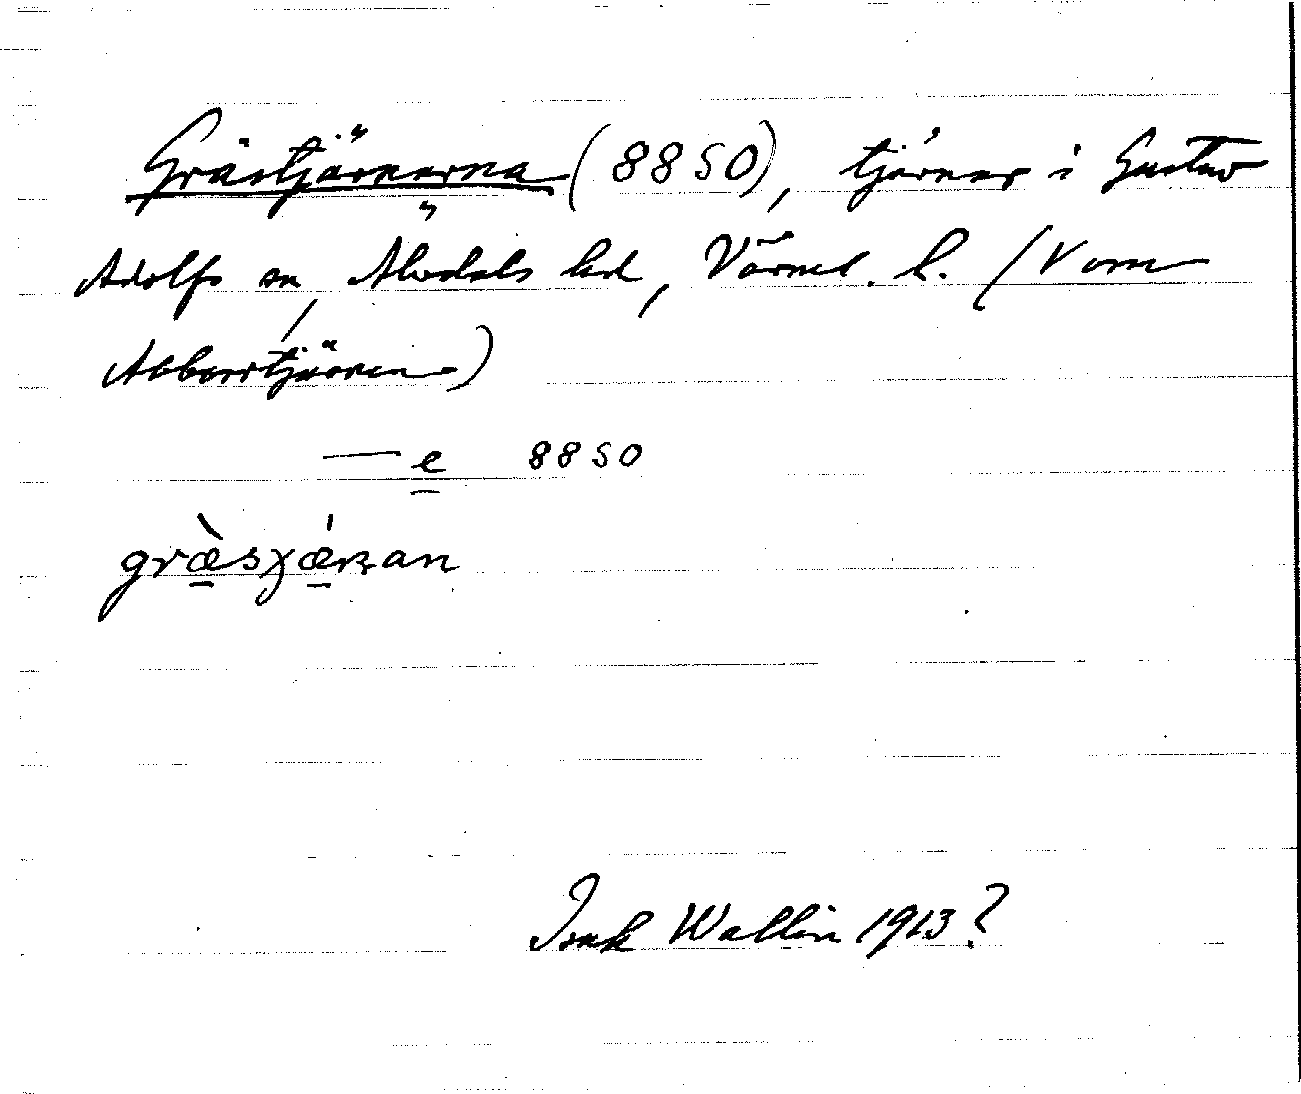 Grästjärnarna (8850), tjärnar i Gustav
Adolfs sn, Älvdals hd, Värml. l. (V om
Abborrtjärnen)
— e 8850
Isak Wallin 1913?